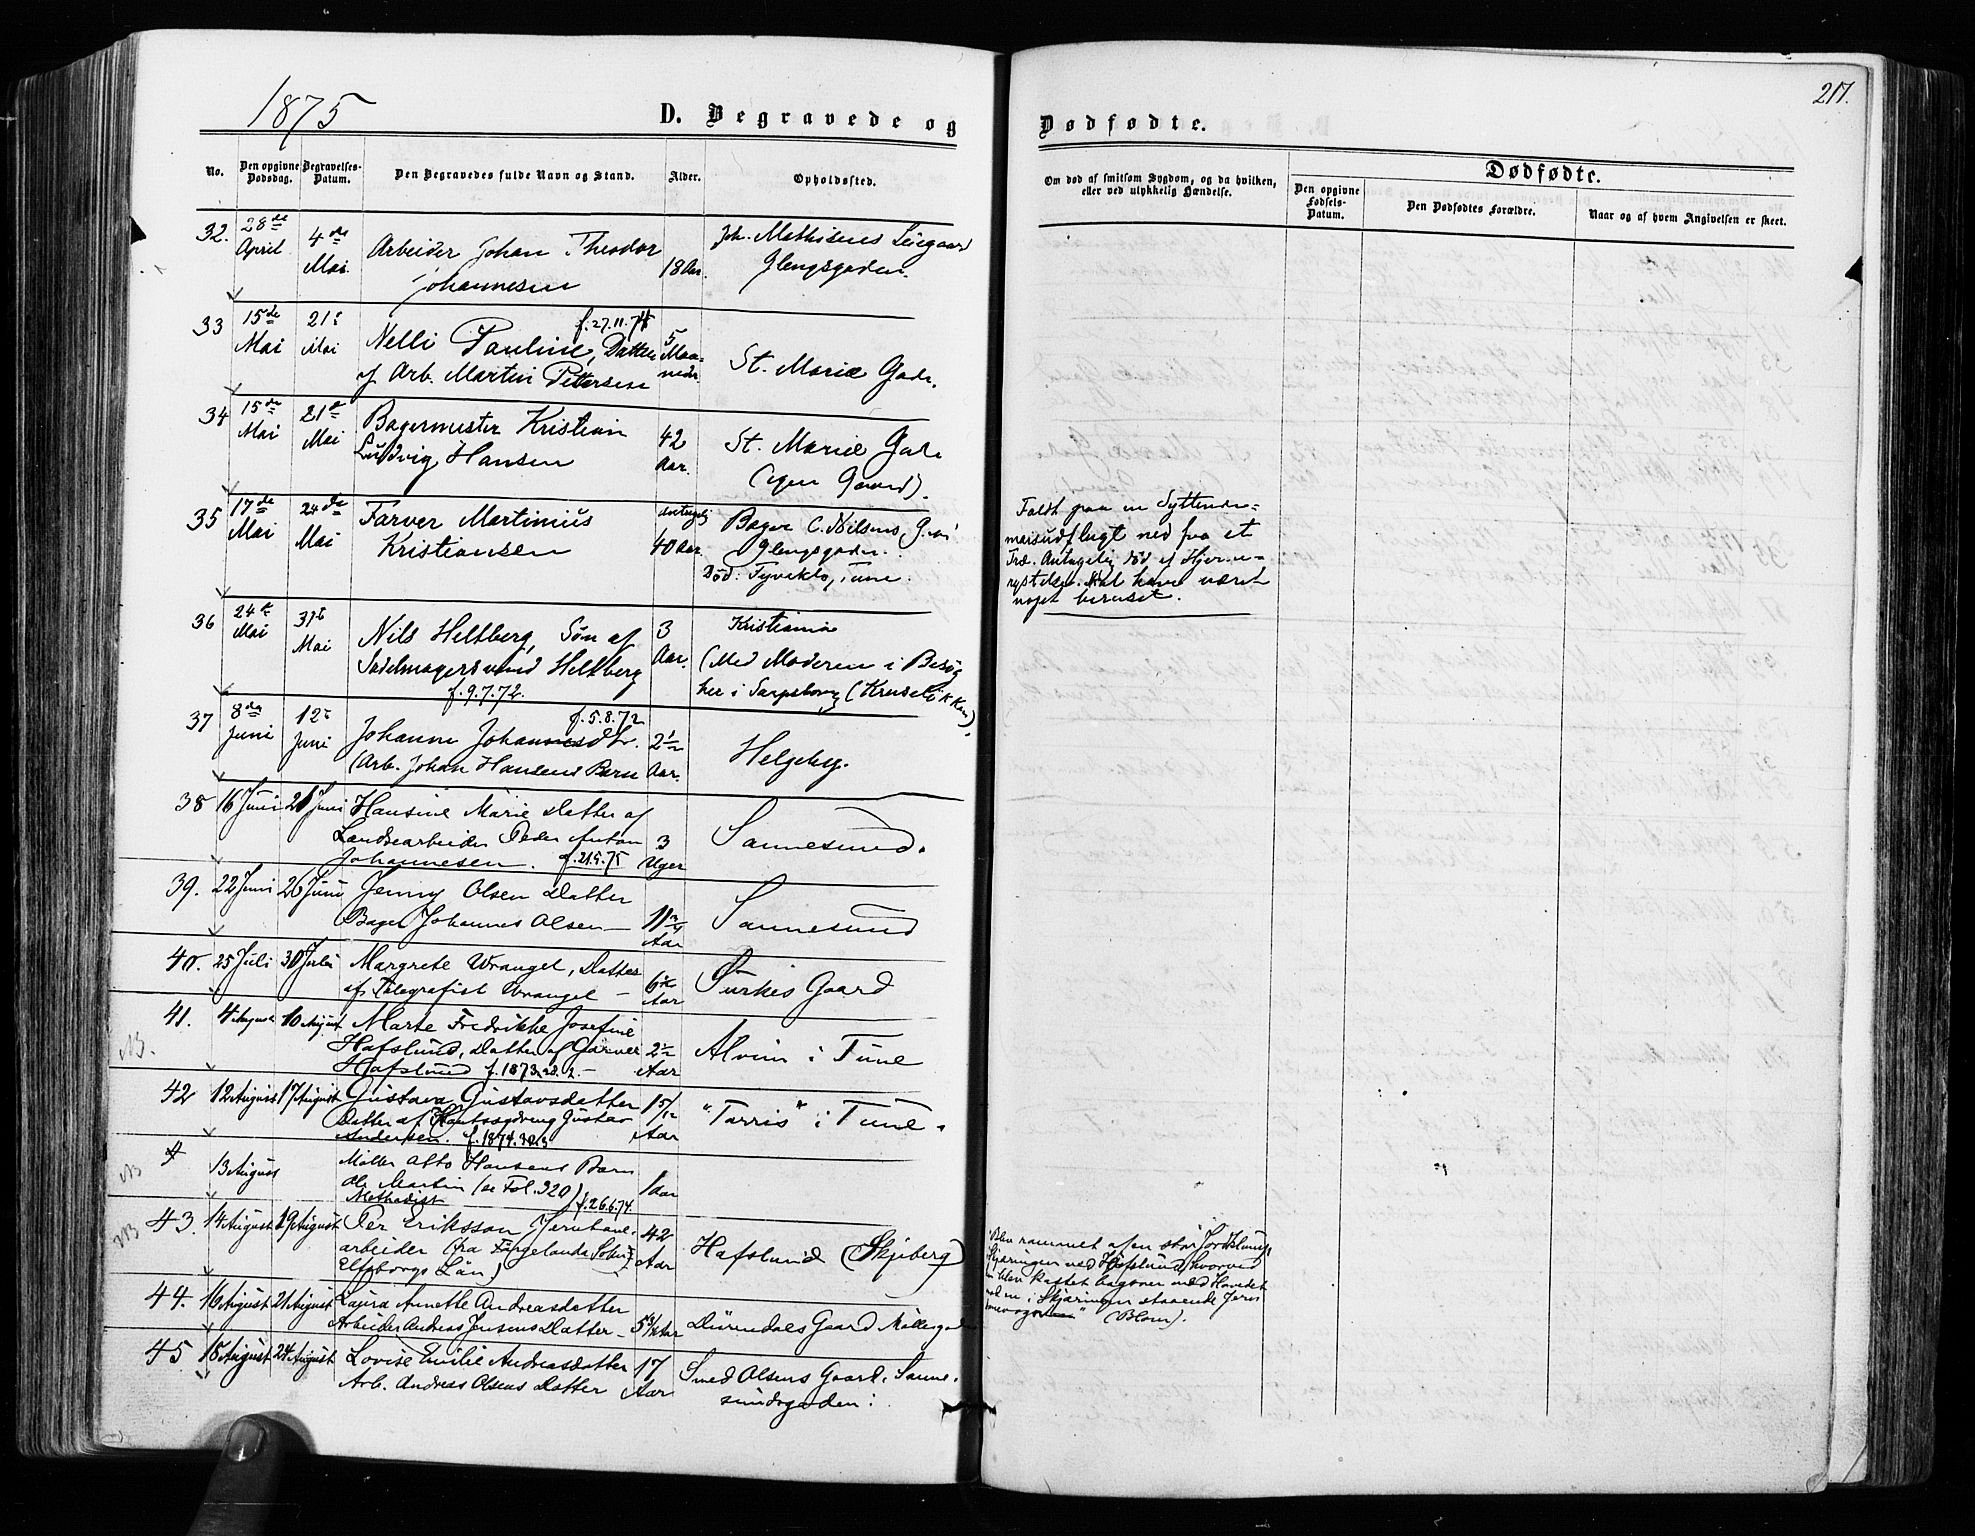 1875
D. Begravede og
Dødfødte.
217.
No.
Den opgivne Dødsdag.
Begravelses-Datum.
Den Begravedes fulde Navn og Stand.
Alder.
Opholdssted.
Om død af smitsom Sygdom, og da hvilken, eller ved ulykkelig Hændelse.
Dødfødte.
Den opgivne Fødsels-Datum.
Den Dødfødtes Forældre.
Naar og af hvem Angivelsen er skeet.
32. 28de April 4de Mai
Arbeider Johan Theodor
Johannesen
18 Aar.
Joh. Mathisens Leiegaard
Glengsgaden.
33 15de Mai 21 Mai
f. 27.11.74
Nelli Pauline, Datter
af Arb. Martin Pettersen
5 Maaneder
St. Marie Gade.
34 15de Mai 21de Mai
Bagermester Kristian
Ludvig Hansen
42 Aar.
St. Marie Gade
(egen Gaard).
35 17de Mai 24de Mai
Farver Martinius
Kristiansen
antagelig 40 Aar.
Bager C. Nilsens G.
Glengsgaden.
Død: Tyveklo, Tune.
Faldt paa en Syttende-
maisudflugt ned fra et
Træ. Antagelig død af Hjerne-
rystelse. Skal have været
noget beruset.
36 24de Mai 31te Mai
Nils Heltberg, Søn af
Sadelmagersvend Heltberg
f. 9.7.72.
3 Aar.
Kristiania
(Med Moderen i Besøg
her i Sarpsborg (Kruseløkken).
37 8de Juni 12te Juni
f. 5.8.72
Johanne Johannesdtr.
(Arb. Johan Hansens Barn
2½ Aar.
Helgeby.
38 16 Juni 21 Juni
Hansine Marie Datter af
Landsearbeider Peder Anton
Johannesen. f. 21.5.75
3 Uger
Sannesund.
39. 22 Juni 26 Juni
Jenny Olsen Datter
Bager Johannes Olsen —
11¾ Aar
Sannesund
40. 25 Juli 30 Juli
Margrete Wrangel, Datter
af Telegrafist Wrangel —
6 Aar
Turkis Gaard
41. 4 August 10 August
NB.
Marte Fredrikke Josefine
Hafslund, Datter af Garver
Hafslund f. 1873.28.2. —
2½ Aar
Alvim i Tune
42 12 August 17 August
Gustava Gustavsdatter
Datter af Gustav
Andersen. f. 1874.30.3
1 5/12 Aar
"Tarris" i Tune.
NB
13 August
Møller Otto Hansens Barn
Ole Martin (se Fol. 320)
Methodist f. 26.6.74.
1 Aar
NB
43. 14 August 19 August
Per Eriksson Jernbane-
arbeider (fra Färgelanda Sokn
Elfsborgs Län)
42 Aar
Hafslund (Skjeberg)
Blev rammet af en stor Jordklump,
Skjæringen ved Hafslund, hvorved
han blev kastet bagover med Hovedet
mod en i Skjæringen staaende Jern
banevogn" (Blom).
44. 16 August 21 August
Laura Annette Andreasdatter
Arbeider Andreas Jensens Datter —
5¾ Aar
Dürendals Gaard Møllergaden
45 18 August 24 August
Lovise Emilie Andreasdatter
Arb. Andreas Olsens Datter
17 Aar
Smed Olsens Gaard, Sanne-
sundsgaden.